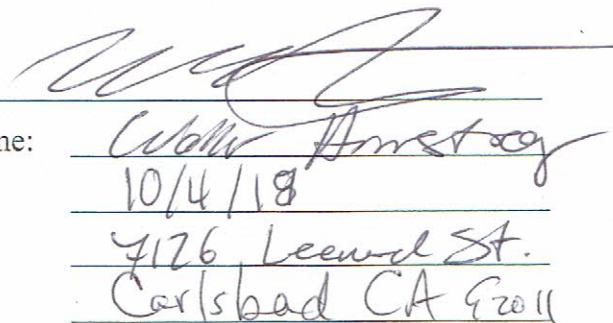 me: Walter Armstrong
10/4/18
7126 Leeward St.
Carlsbad CA 92011